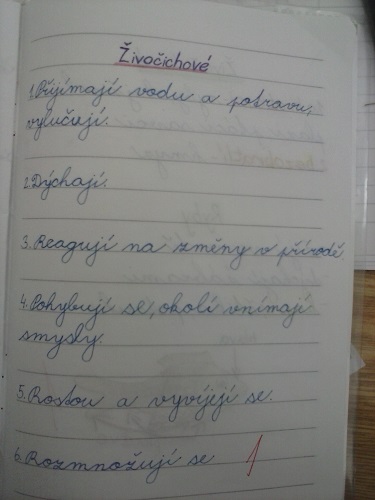 Živočichové
1. Přijímají vodu a potravu,
vylučují.
2. Dýchají.
3. Reagují na změny v přírodě
4. Pohybují se, okolí vnímají
smysly.
5. Rostou a vyvíjejí se.
6. Rozmnožují se 1